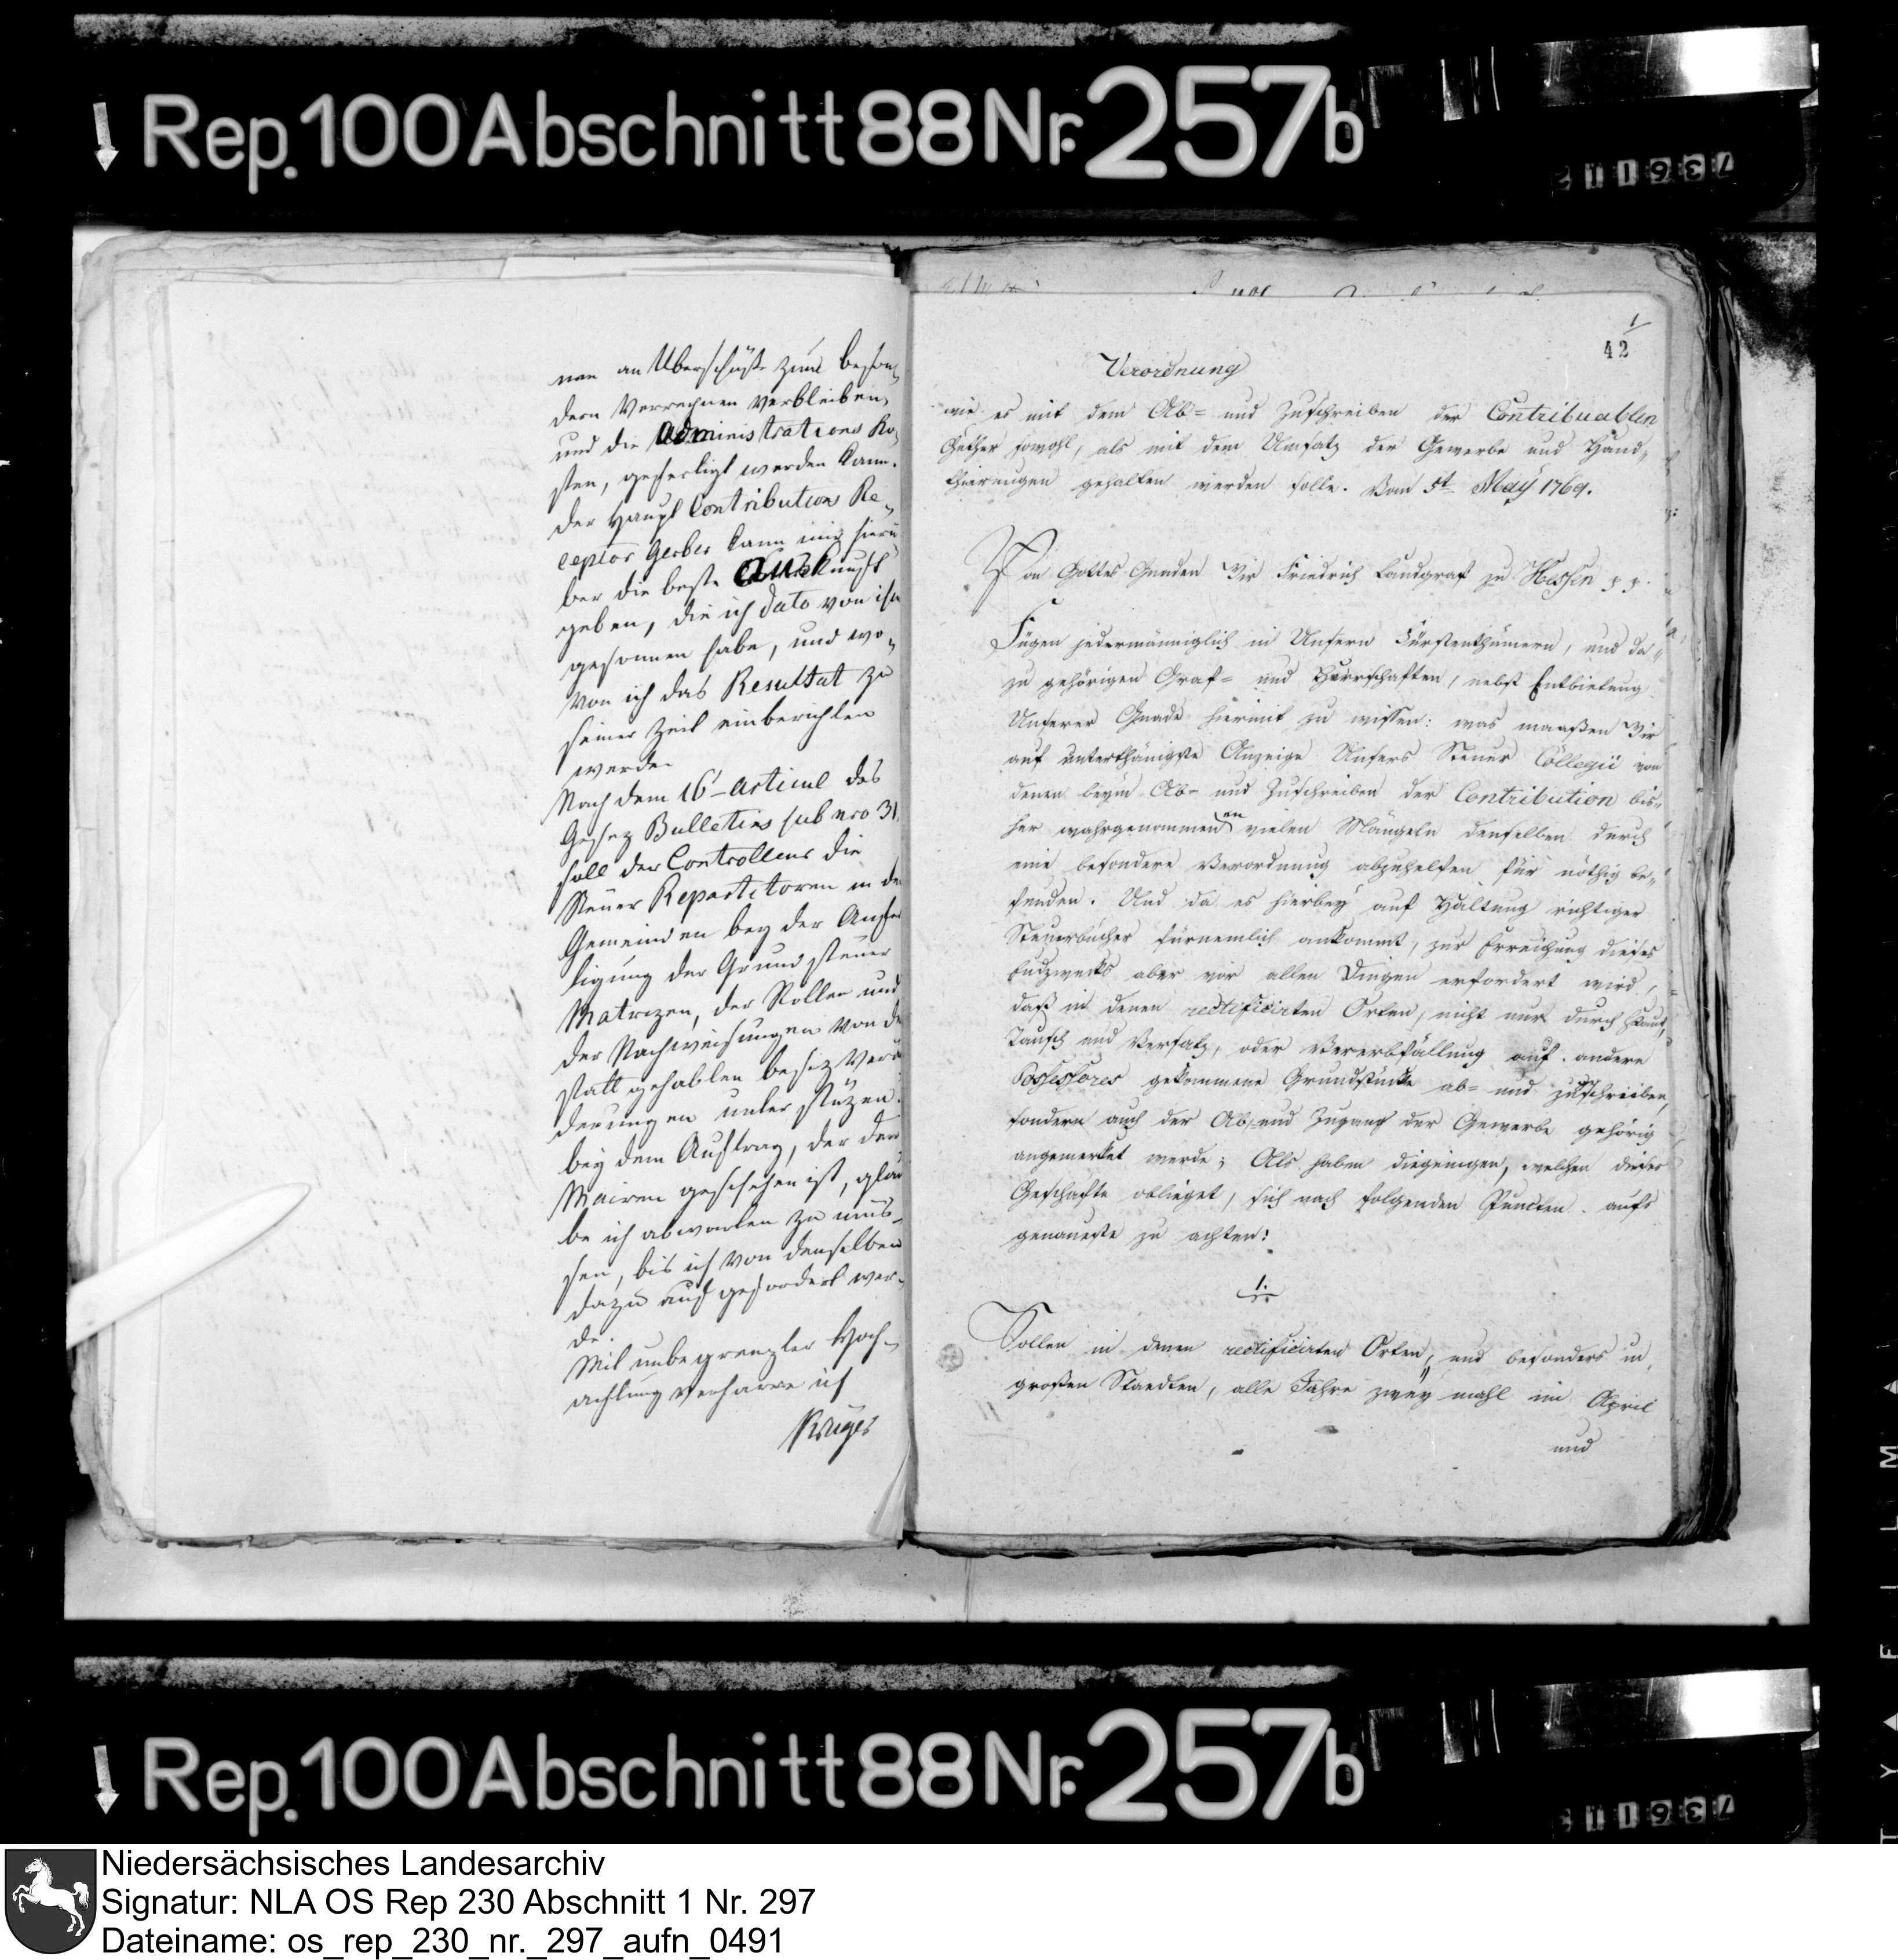 Rep. 100 Abschnitt 88 Nr. 257b
nen an Überschüsse zum beson-
dern Verrechnen verbleiben,
und die Administrations Ko-
sten, gefertigt werden kann.
der Haupt Contributions Re-
ceptor Gerber kann mir hierü
ber die beste Auskunft
geben, die ich dato von ihm
gesonnen habe, und wo-
von ich das Resultat zu
seiner Zeit einberichten
werde.
Nach dem 16t articul des
Gesez Bulletins sub nro 31
soll der Controlleur die
Steuer Repartitoren in de
Gemeinden bey der Anfer
tigung der Grundsteuer
Matrizen, der Rollen und
der Nachweisungen von de
statt gehabten besiz Verä
derungen unterstüzen.
bey dem Auftrag, der den
Mairen geschehen ist, glau
be ich abwarten zu müs-
sen, bis ich von denselben
dazu aufgefordert wer-
de.
Mit unbegränzter Hoch-
achtung verharre ich
Krüger
1
42
Verordnung
wie es mit dem Ab= und Zuschreiben der Contribuablen
Güther sowohl, als mit dem Umsatz der Gewerbe und Hand-
thierungen gehalten werden solle. Vom 5t May 1769.
Von Gottes Gnaden Wir Friedrich Landgraf zu Hessen p p.
Fügen jedermänniglich in Unsern Fürstenthümern, und da-
zu gehörigen Graf= und Herrschaften, nebst Entbietung
Unserer Gnade hiermit zu wissen: was maaßen Wir
auf unterthänigste Anzeige Unsers Steuer Collegii von
denen beym Ab- und Zuschreiben der Contribution bis-
her wahrgenommenen vielen Mängeln denselben durch
eine besondere Verordnung abzuhelfen für nöthig be-
funden. Und da es hierbey auf Haltung richtiger
Steuerbücher fürnemlich ankommt, zur Erreichung dieses
Endzwecks aber vor allen Dingen erfordert wird,
daß in denen rectificirten Orten, nicht nur durch Kauf,
Tausch und Versatz, oder Vererbfällung auf andere
Possessores gekommene Grundstücke ab= und zuschreiben,
sondern auch der Ab- und Zugang der Gewerbe gehörig
angemerket werde; Als haben diejenigen, welchen dieses
Geschäfte oblieget, sich nach folgenden Puncten aufs
genaueste zu achten:
1.
Sollen in denen rectificirten Orten, und besonders in
großen Staedten, alle Jahre zwey mahl im April
und
Rep. 100 Abschnitt 88 Nr. 257b
Niedersächsisches Landesarchiv
Signatur: NLA OS Rep 230 Abschnitt 1 Nr. 297
Dateiname: os_rep_230_nr._297_aufn_0491